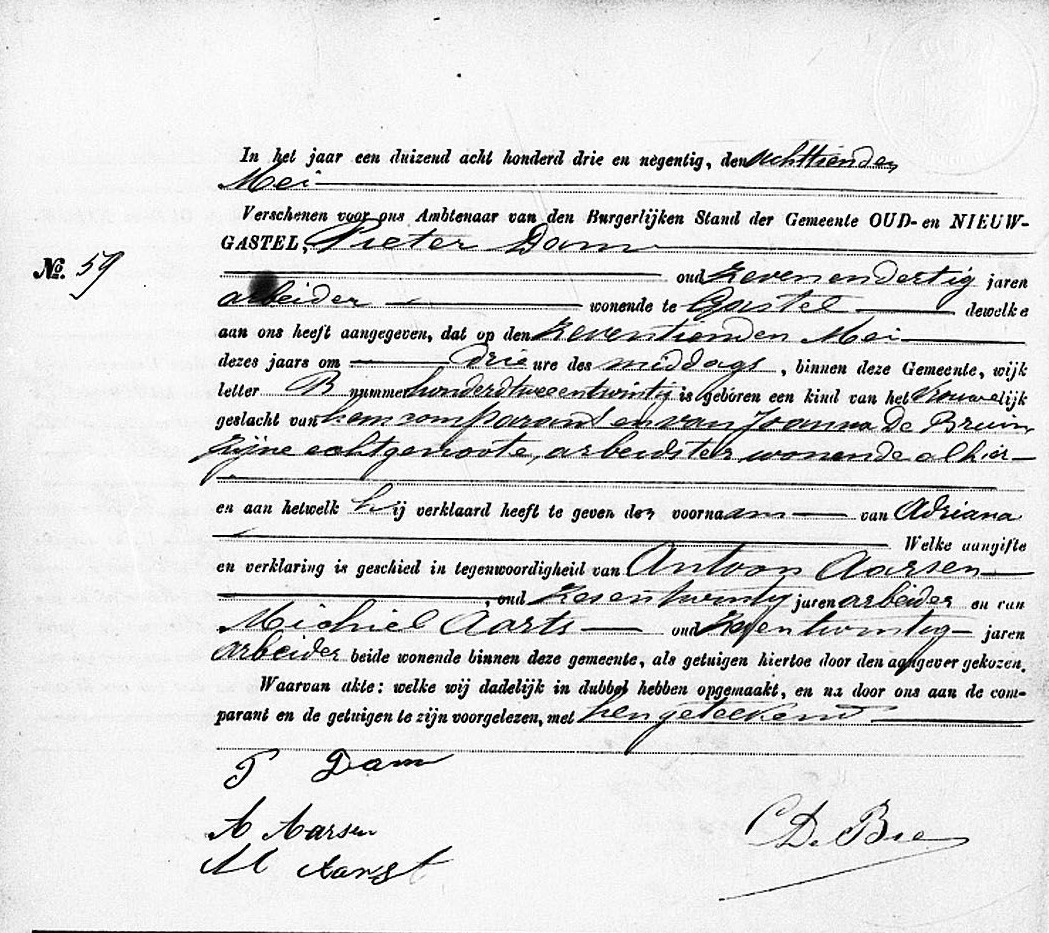 In het jaar een duizend acht honderd drie en negentig, den achttienden
Mei
Verschenen voor ons Ambtenaar van den Burgerlijken Stand der Gemeente OUD- en NIEUW-
GASTEL, Pieter Dam
No. 59
oud zevenendertig jaren
arbeider wonende te Gastel dewelke
aan ons heeft aangegeven, dat op den zeventienden Mei
dezes jaars om drie ure des middags, binnen deze Gemeente, wijk
letter B nummer honderdtweeentwintig is geboren een kind van het vrouwelijk
geslacht van hem comparant en van Joanna De Bruin
zijne echtgenoote, arbeidster wonende alhier
en aan hetwelk hij verklaard heeft te geven den voornaam van Adriana
Welke aangifte
en verklaring is geschied in tegenwoordigheid van Antoon Aarsen
, oud zesentwintig jaren arbeider en van
Michiel Aarts oud entwintig jaren
arbeider beide wonende binnen deze gemeente, als getuigen hiertoe door den aangever gekozen.
Waarvan akte: welke wij dadelijk in dubbel hebben opgemaakt, en na door ons aan de com-
parant en de getuigen te zijn voorgelezen, met hen geteekend
P Dam
A Aarsen
M
C De Bie